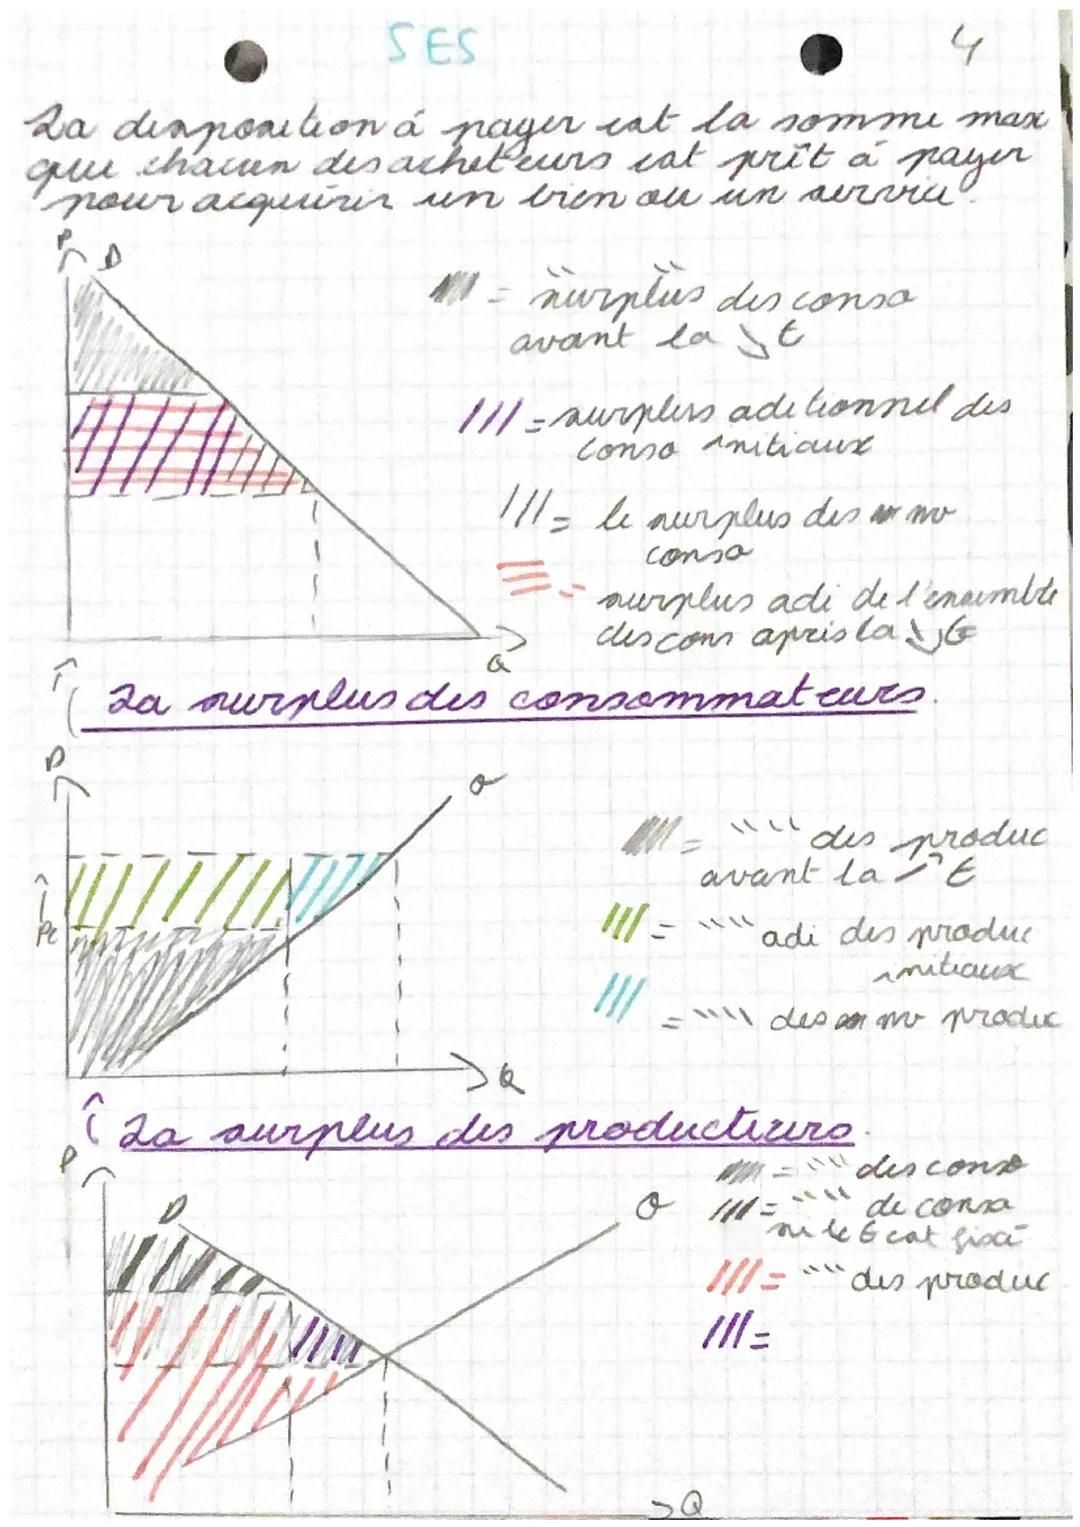 SES
4
La disposition à payer est la somme max
que chacun des acheteurs est prêt à payer
pour acquérir un bien ou un service.
P
D
= "surplus" des conso
avant la ↘ t
= surplus aditionnel des
conso initiaux
= le surplus des nv
conso
= surplus adi de l'ensemble
des cons après la ↘ t
Q
↑ La surplus des consommateurs.
P
O
= """" des produc
avant la ↗ t
Pe
= """" adi des produc
initiaux
= """" des nv produc
Q
↑ La surplus des producteurs.
P
D
O
= """" des conso
= """" de conso
si le t est fixé
= """" des produc
=
Q